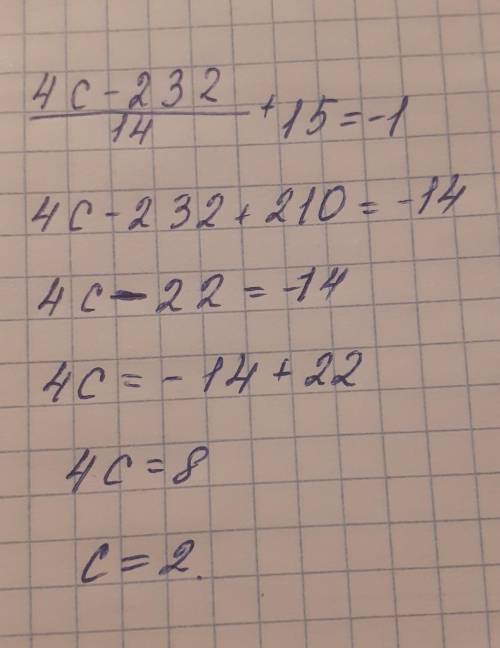 4c-232
14
+15=-1
4c-232+210=-14
4c-22=-14
4c=-14+22
4c=8
c=2.